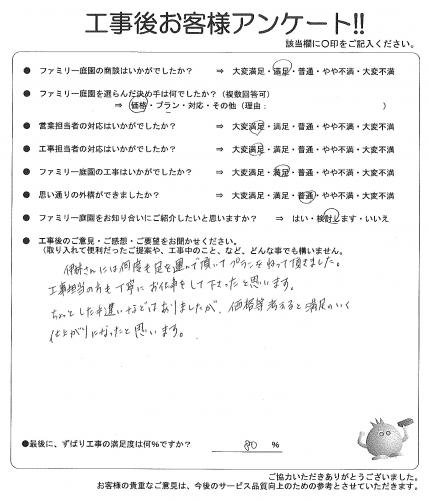 工事後お客様アンケート!!
該当欄に○印をご記入ください。
● ファミリー庭園の商談はいかがでしたか？ ⇒ 大変満足・満足・普通・やや不満・大変不満
● ファミリー庭園を選らんだ決め手は何でしたか？（複数回答可）
⇒ 価格・プラン・対応・その他（理由： ）
● 営業担当者の対応はいかがでしたか？ ⇒ 大変満足・満足・普通・やや不満・大変不満
● 工事担当者の対応はいかがでしたか？ ⇒ 大変満足・満足・普通・やや不満・大変不満
● ファミリー庭園の工事はいかがでしたか？ ⇒ 大変満足・満足・普通・やや不満・大変不満
● 思い通りの外構ができましたか？ ⇒ 大変満足・満足・普通・やや不満・大変不満
● ファミリー庭園をお知り合いにご紹介したいと思いますか？ ⇒ はい・検討します・いいえ
● 工事後のご意見・ご感想・ご要望をお聞かせください。
（取り入れて便利だったご提案や、工事中のこと、など、どんな事でも構いません。
さんには何度も足を運んで頂いてプランをねって頂きました。
工事担当の方も丁寧にお仕事をして下さったと思います。
ちょっとした手違いなどはありましたが、価格等考えると満足のいく
仕上がりになったと思います。
●最後に、ずばり工事の満足度は何％ですか？ 80 ％
ご協力いただきありがとうございました。
お客様の貴重なご意見は、今後のサービス品質向上のための参考とさせていただきます。